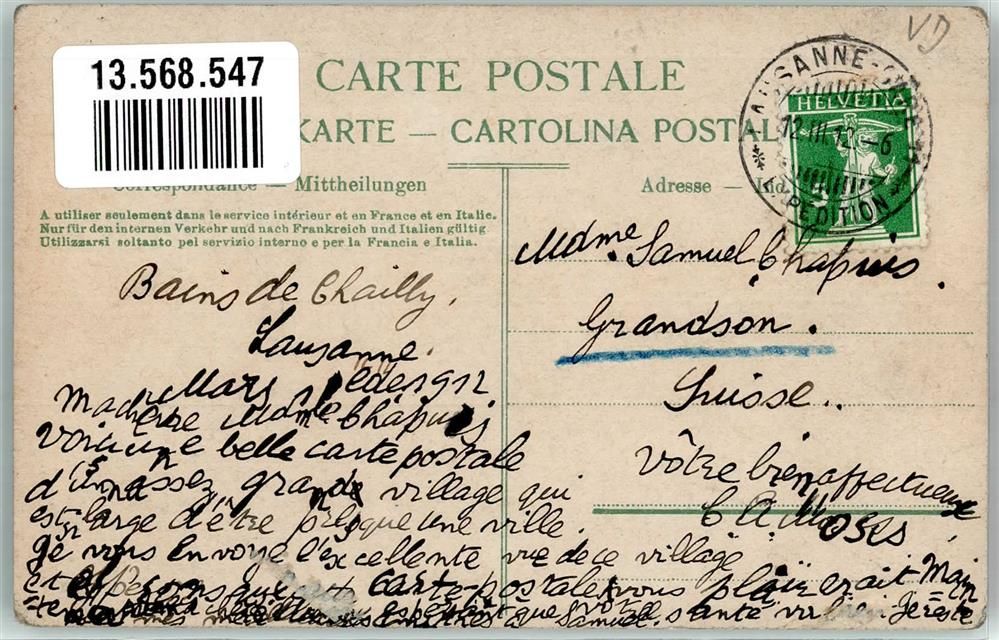 VD
13.568.547
CARTE POSTALE
KARTE — CARTOLINA POSTAL
Correspondance — Mittheilungen
Adresse —
A utiliser seulement dans le service intérieur et en France et en Italie.
Nur für den internen Verkehr und nach Frankreich und Italien gültig
Utilizzarsi soltanto pel servizio interno e per la Francia e Italia.
LAUSANNE
12.III.12.-6
EXPEDITION
HELVETIA
5
Mdme Samuel Chapuis.
Grandson.
Suisse..
vôtre bien affectueuse
C A Moses
Bains de Chailly.
Lausanne.
Mars 1912
Ma chère Mdme Chapuis
voici une belle carte postale
d'un assez grand village qui
est large d'être presque une ville.
Je vous Envoye l'excellente vue de ce village
et espérons que carte postale vous plairait Main
espérant que vôtre santé va bien Je reste
Samuel